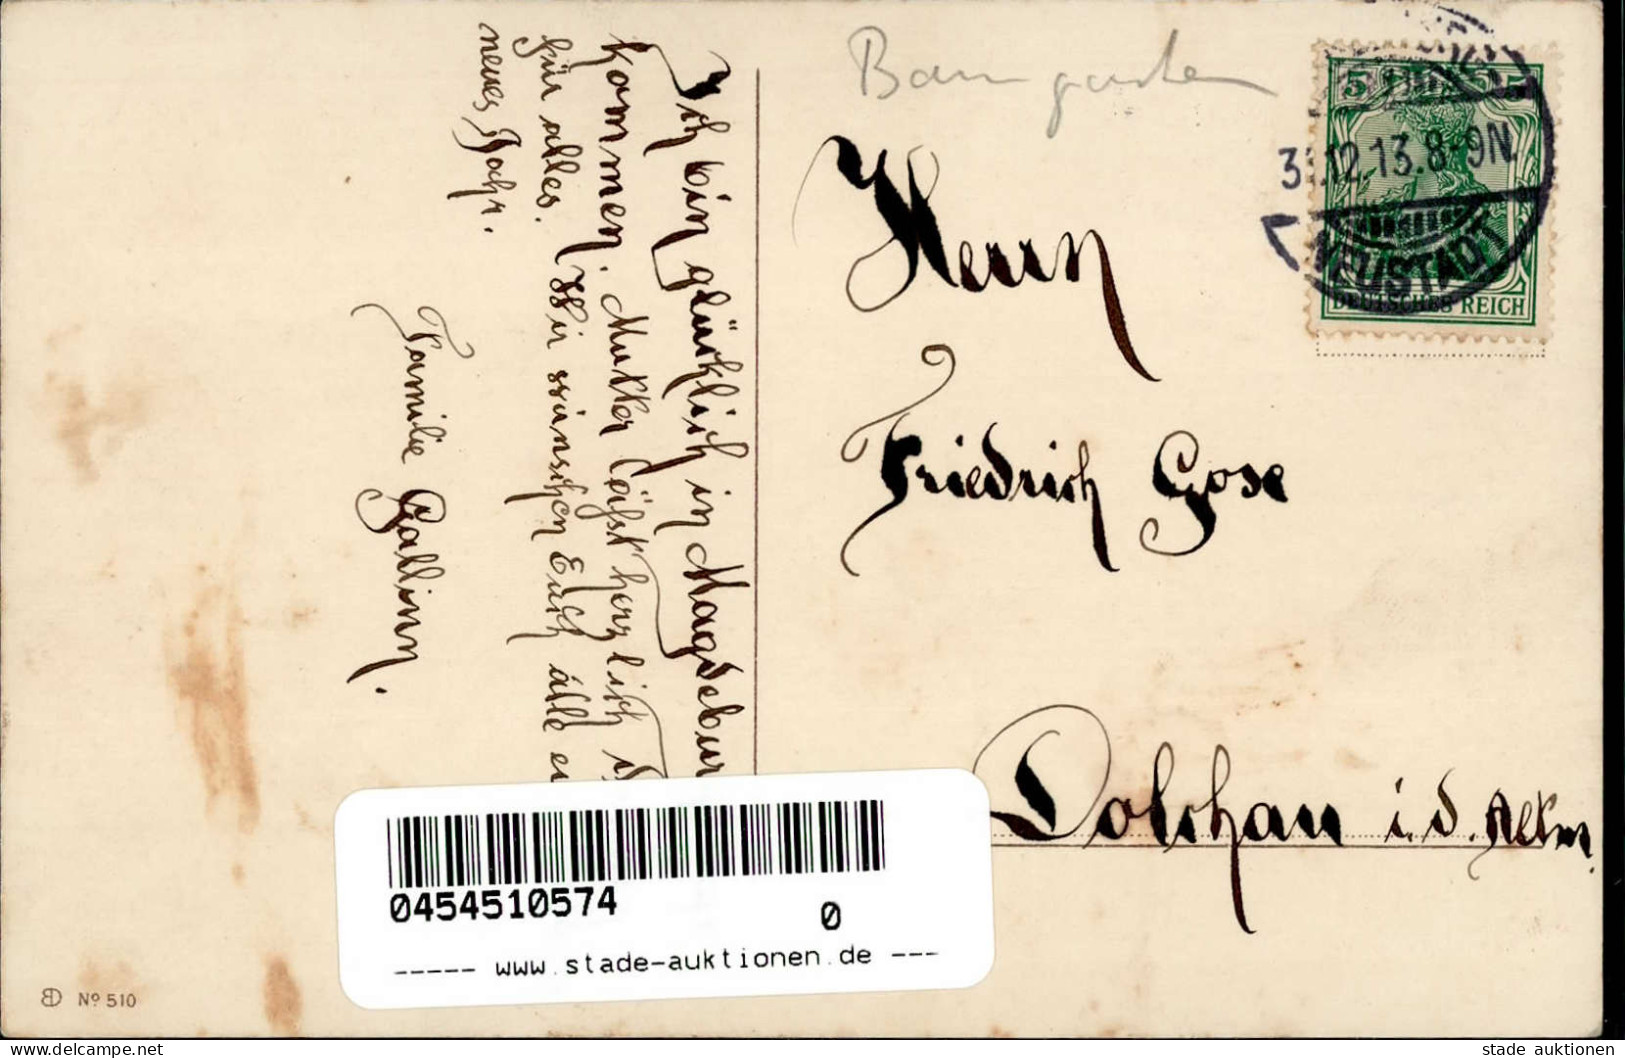 Baumgarten
Ich bin glücklich in Magdebur
kommen. Mutter läßt herzlich d
für alles. Wir wünschen Euch alle ei
neues Jahr.
Familie Gallinn.
Herrn
Friedrich Gose
Dolchau i. d. Altm.
5 5
31.12.13.8-9N.
NEUSTADT
DEUTSCHES REICH
0454510574
0
----- www.stade-auktionen.de ---
BD Nº 510
the best of everything - delcampe.net
stade auktionen